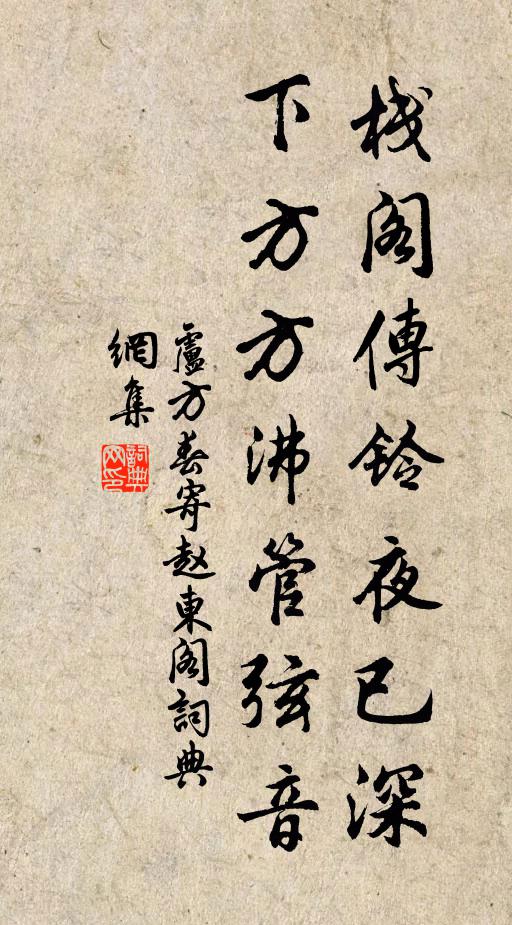 栈阁傳鈴夜已深
下方方沸管弦音
盧方春寄赵東阁詞典
網集
詞典
网印